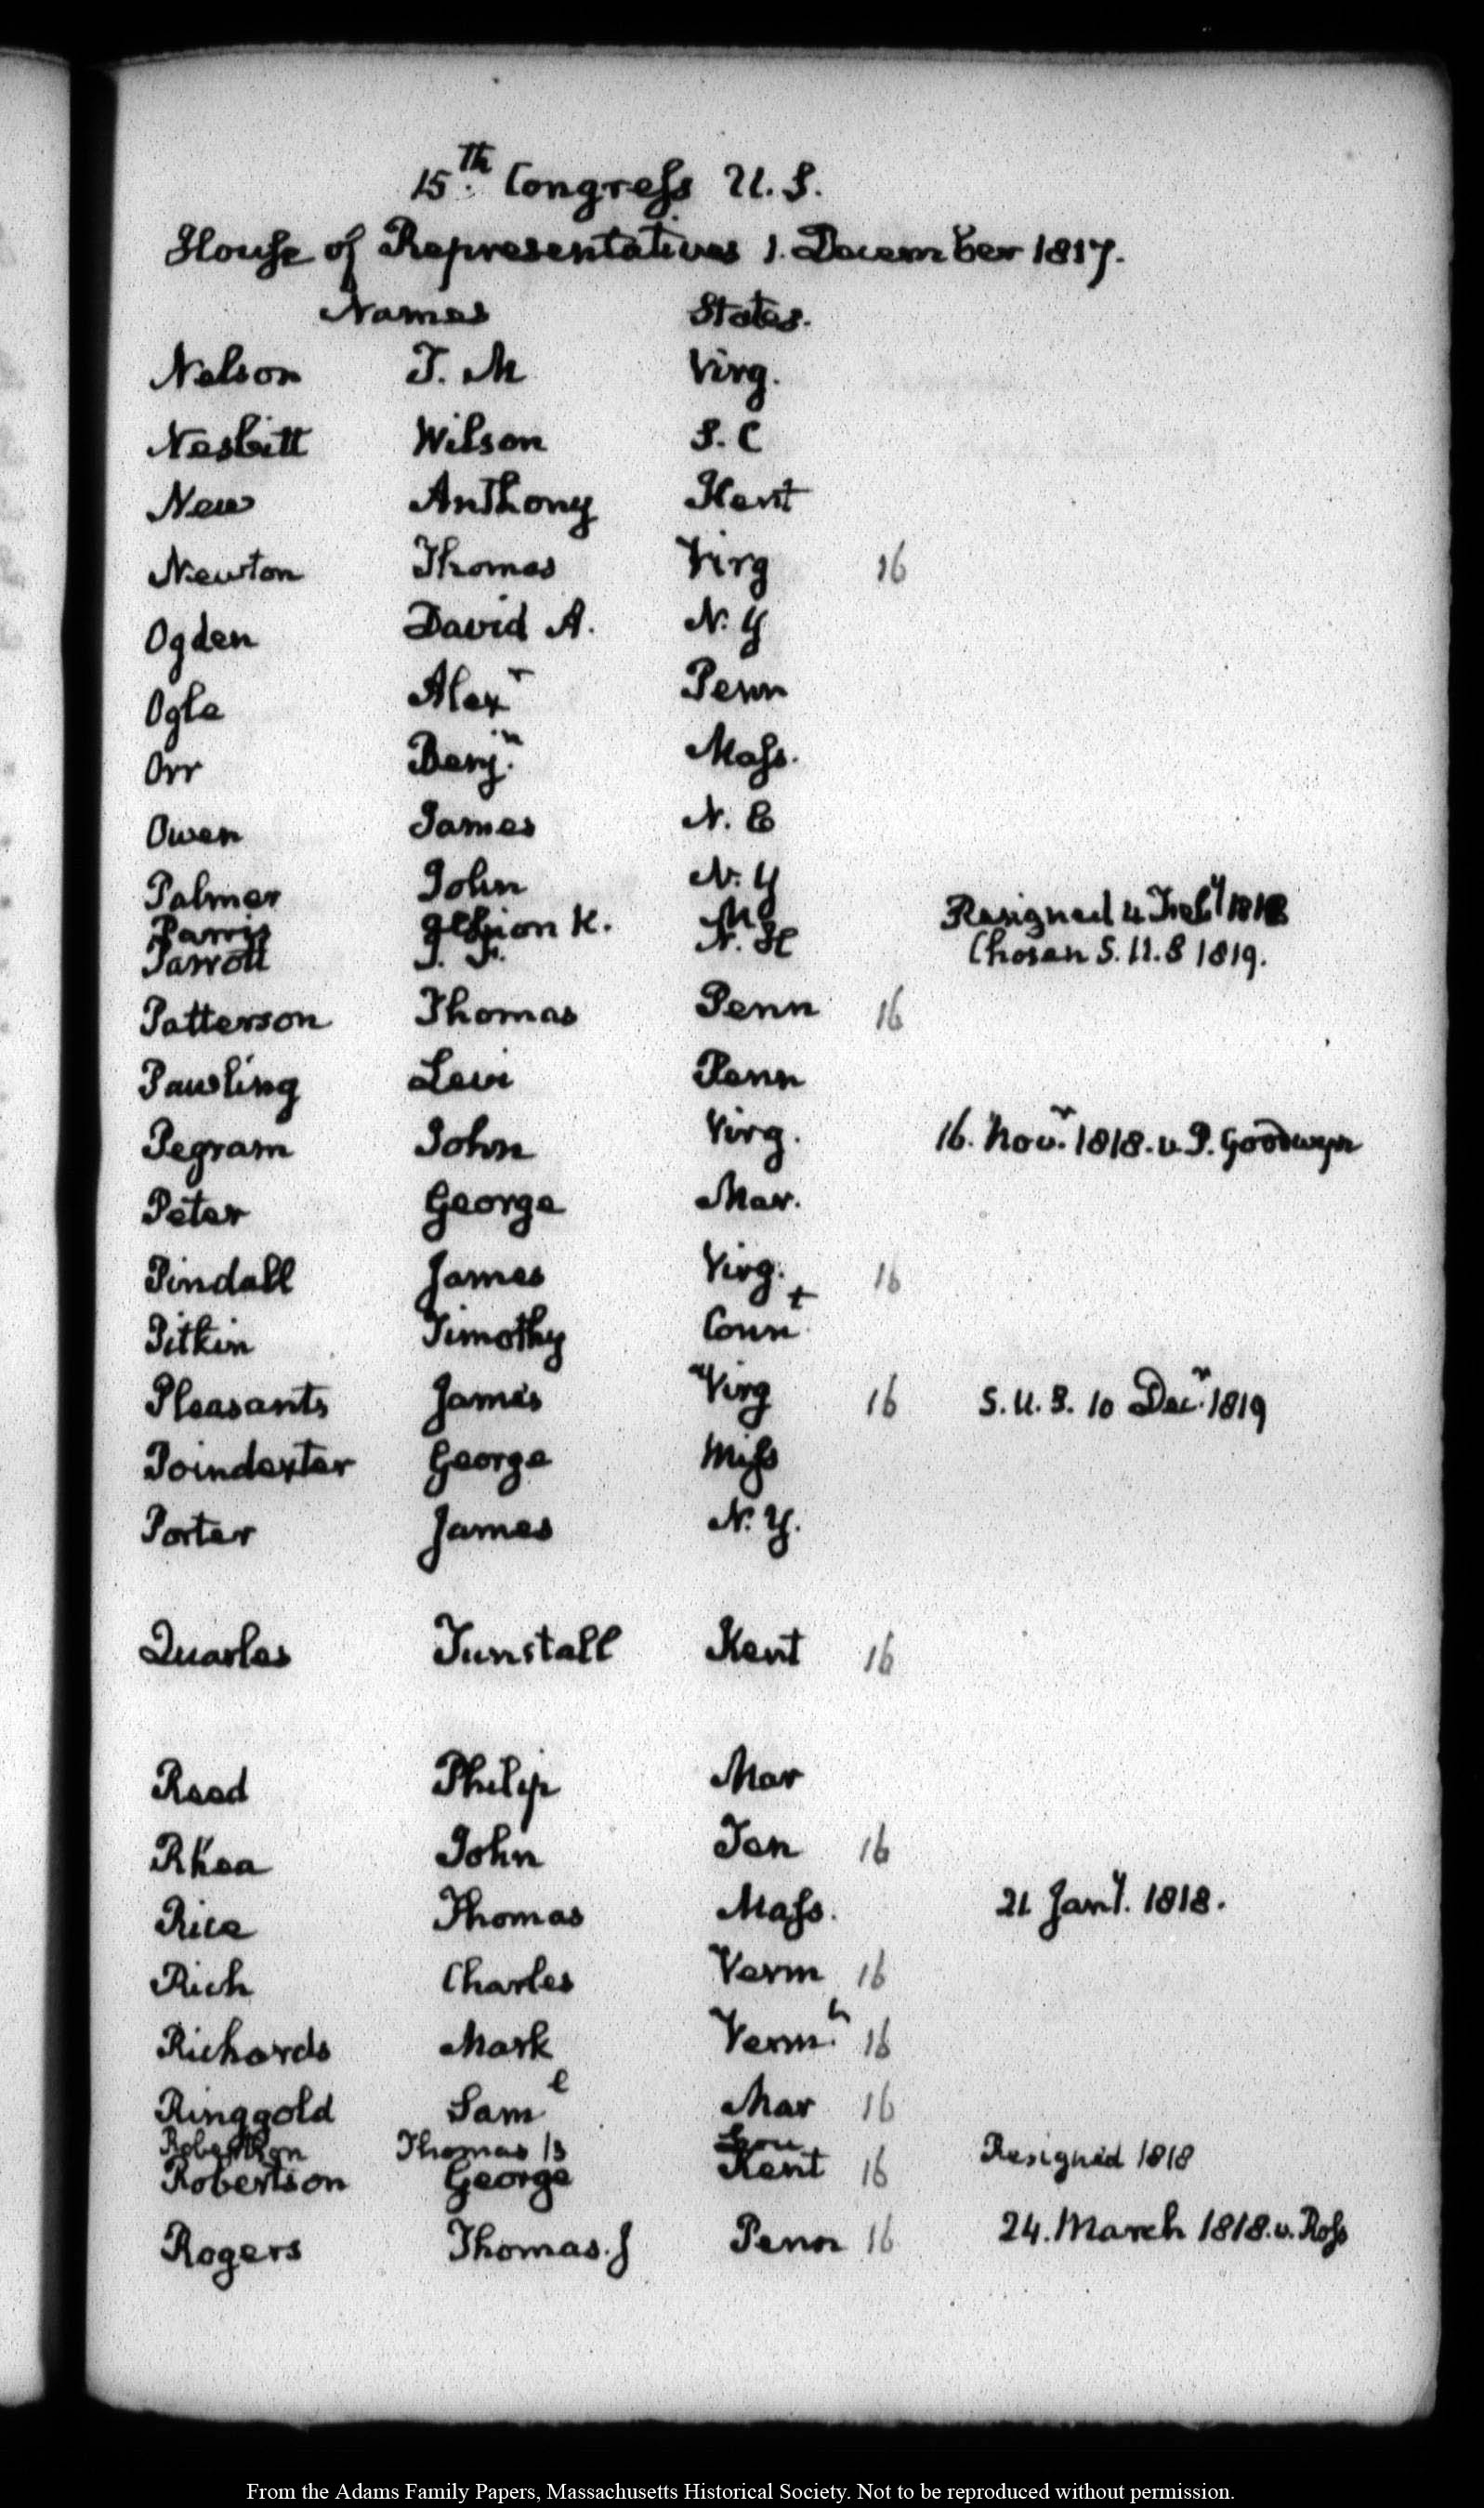 15th. Congress U.S.
House of Representatives 1. December 1817.
Names States.
Nelson T. M Virg.
Nesbitt Wilson S. C
New Anthony Kent
Newton Thomas Virg 16
Ogden David A. N. Y
Ogle Alexr Penn
Orr Benjn. Mass.
Owen James N. C
Palmer John N. Y
Parris Albion K. M Resigned 4 Feby 1818
Parrott J. F. N. H Chosen S. U. S 1819.
Patterson Thomas Penn 16
Pawling Levi Penn
Pegram John Virg. 16. Novr. 1818. v. P. Goodwyn
Peter George Mar.
Pindall James Virg. 16
Pitkin Timothy Connt.
Pleasants James Virg 16 S. U. S. 10 Decr. 1819
Poindexter George Miss
Porter James N. Y.
Quarles Tunstall Kent 16
Reed Philip Mar
Rhea John Ten 16
Rice Thomas Mass. 21 Jany. 1818.
Rich Charles Verm 16
Richards Mark Verm. 16
Ringgold Saml Mar 16
Robertson Thomas B Lou Resigned 1818
Robertson George Kent 16
Rogers Thomas. J Penn 16 24. March 1818. v. Ross
From the Adams Family Papers, Massachusetts Historical Society. Not to be reproduced without permission.